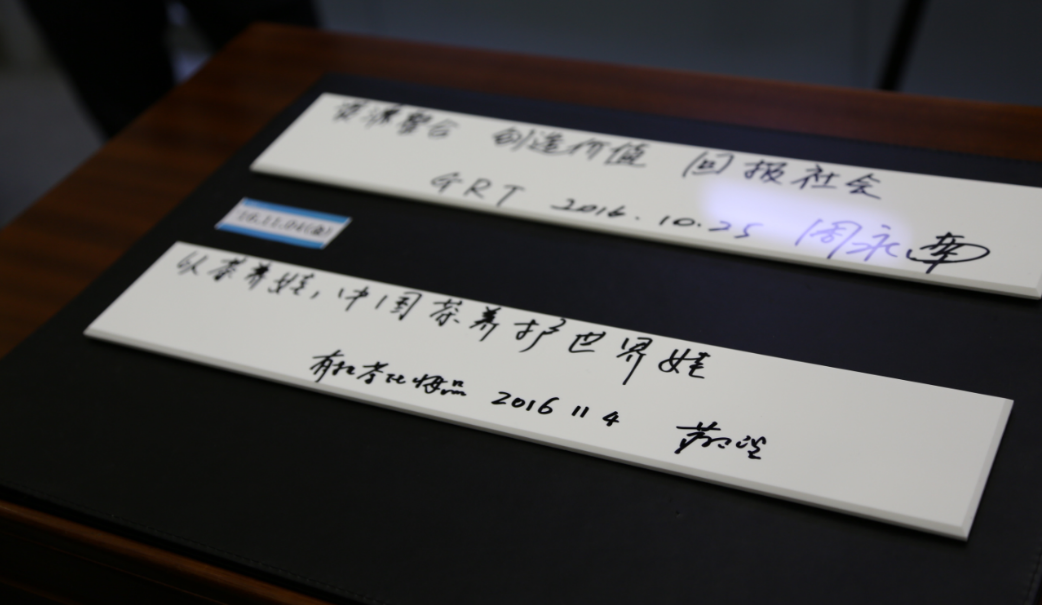 资源整合 创造价值 回报社会
GRT 2016.10.25 周永
16.11.04(金)
以茶养娃,中国茶养护世界娃
有机 2016 11 4